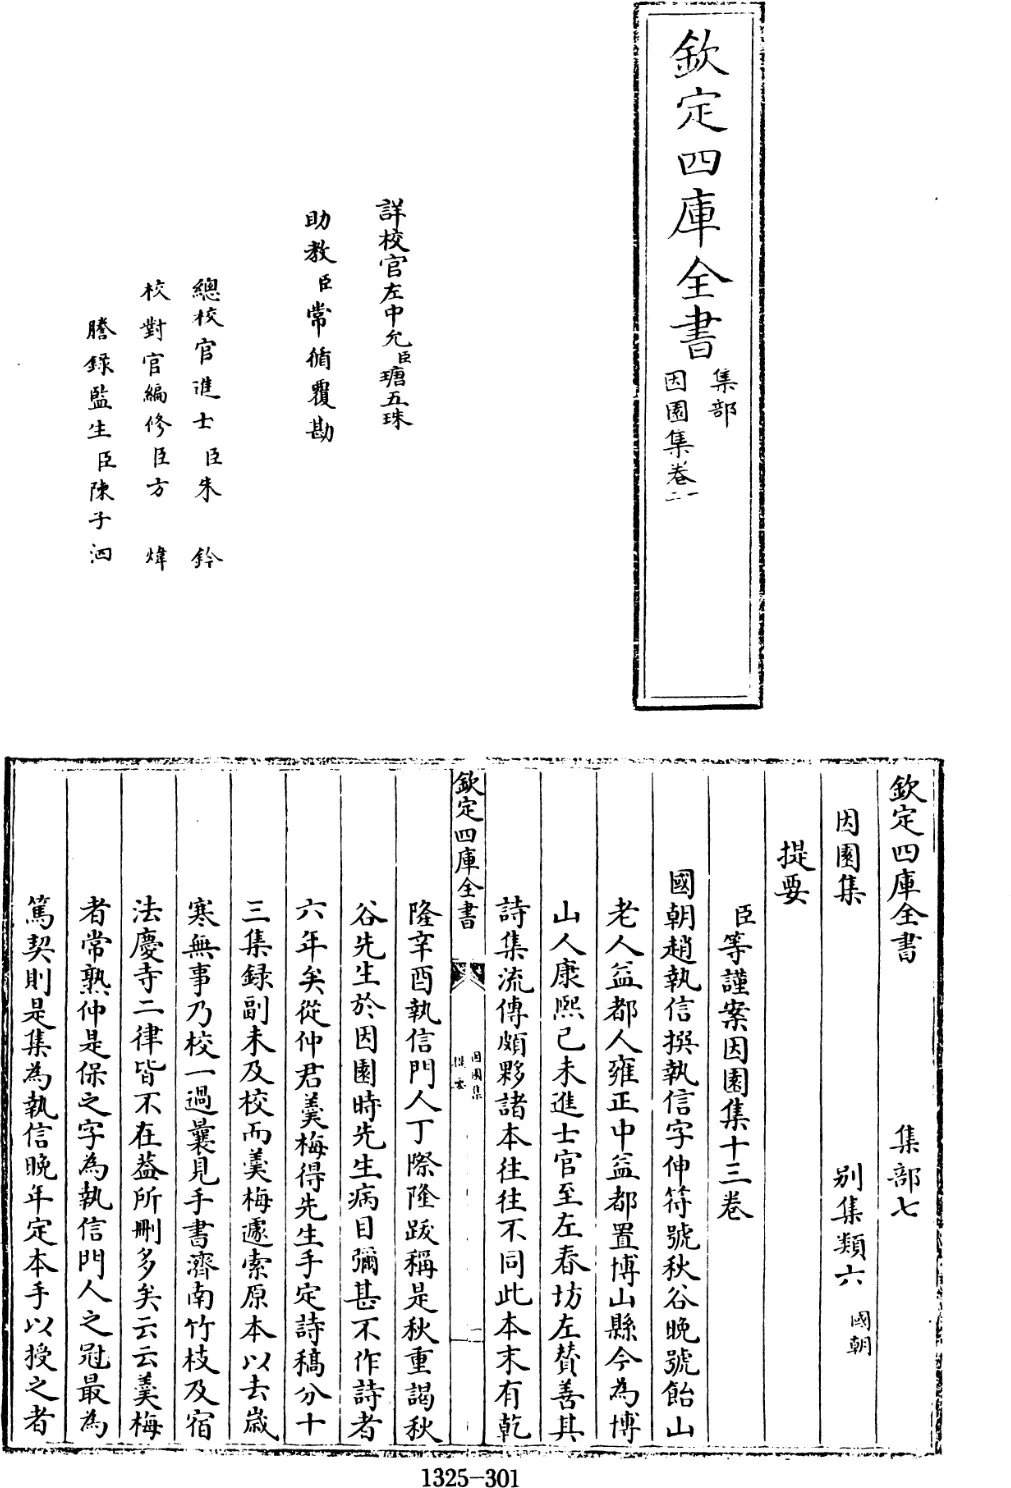 欽定四庫全書
集部
因園集卷一
二
詳校官左中允臣瑭五珠
助教臣常循覆勘
總校官進士臣朱鈐
校對官編修臣方煒
謄錄監生臣陳子泗
欽定四庫全書 集部七
因園集 別集類六 國朝
提要
臣等謹案因園集十三卷
國朝趙執信撰執信字伸符號秋谷晩號飴山
老人益都人雍正中益都置博山縣今為博
山人康熙己未進士官至左春坊左賛善其
詩集流傳頗夥諸本往往不同此本末有乾
欽定四庫全書
因園集
提要
一
隆辛酉執信門人丁際隆跋稱是秋重謁秋
谷先生於因園時先生病目彌甚不作詩者
六年矣從仲君羹梅得先生手定詩稿分十
三集録副未及校而羹梅遽索原本以去嵗
寒無事乃校一過曩見手書濟南竹枝及宿
法慶寺二律皆不在葢所刪多矣云云羹梅
者常熟仲是保之字為執信門人之冠最為
篤契則是集為執信晩年定本手以授之者
1325-301